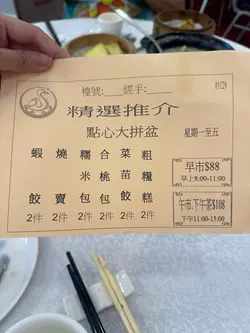 檯號:____經手:____ #1129
精選推介
點心大拼盆 星期一至五
蝦餃 2件
燒賣 2件
糯米包 2件
合桃包 2件
菜苗餃 2件
粗糧糕 2件
早市$88
早上8:00-11:00
午市/下午茶$108
下午11:00-15:00